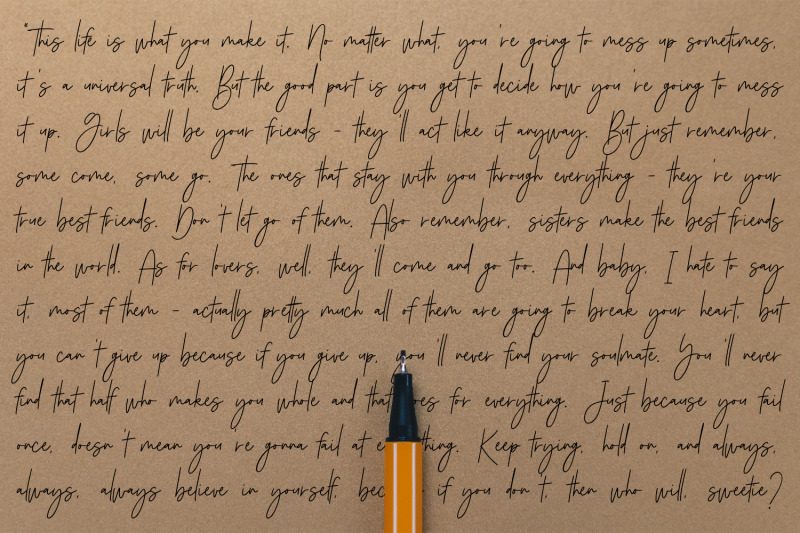 "This life is what you make it. No matter what, you're going to mess up sometimes,
it's a universal truth. But the good part is you get to decide how you're going to mess
it up. Girls will be your friends - they'll act like it anyway. But just remember,
some come, some go. The ones that stay with you through everything - they're your
true best friends. Don't let go of them. Also remember, sisters make the best friends
in the world. As for lovers, well, they'll come and go too. And baby, I hate to say
it, most of them - actually pretty much all of them are going to break your heart, but
you can't give up because if you give up, you'll never find your soulmate. You'll never
find that half who makes you whole and that for everything. Just because you fail
once, doesn't mean you're gonna fail at Keep trying, hold on, and always,
always, always believe in yourself, if you don't, then who will, sweetie?